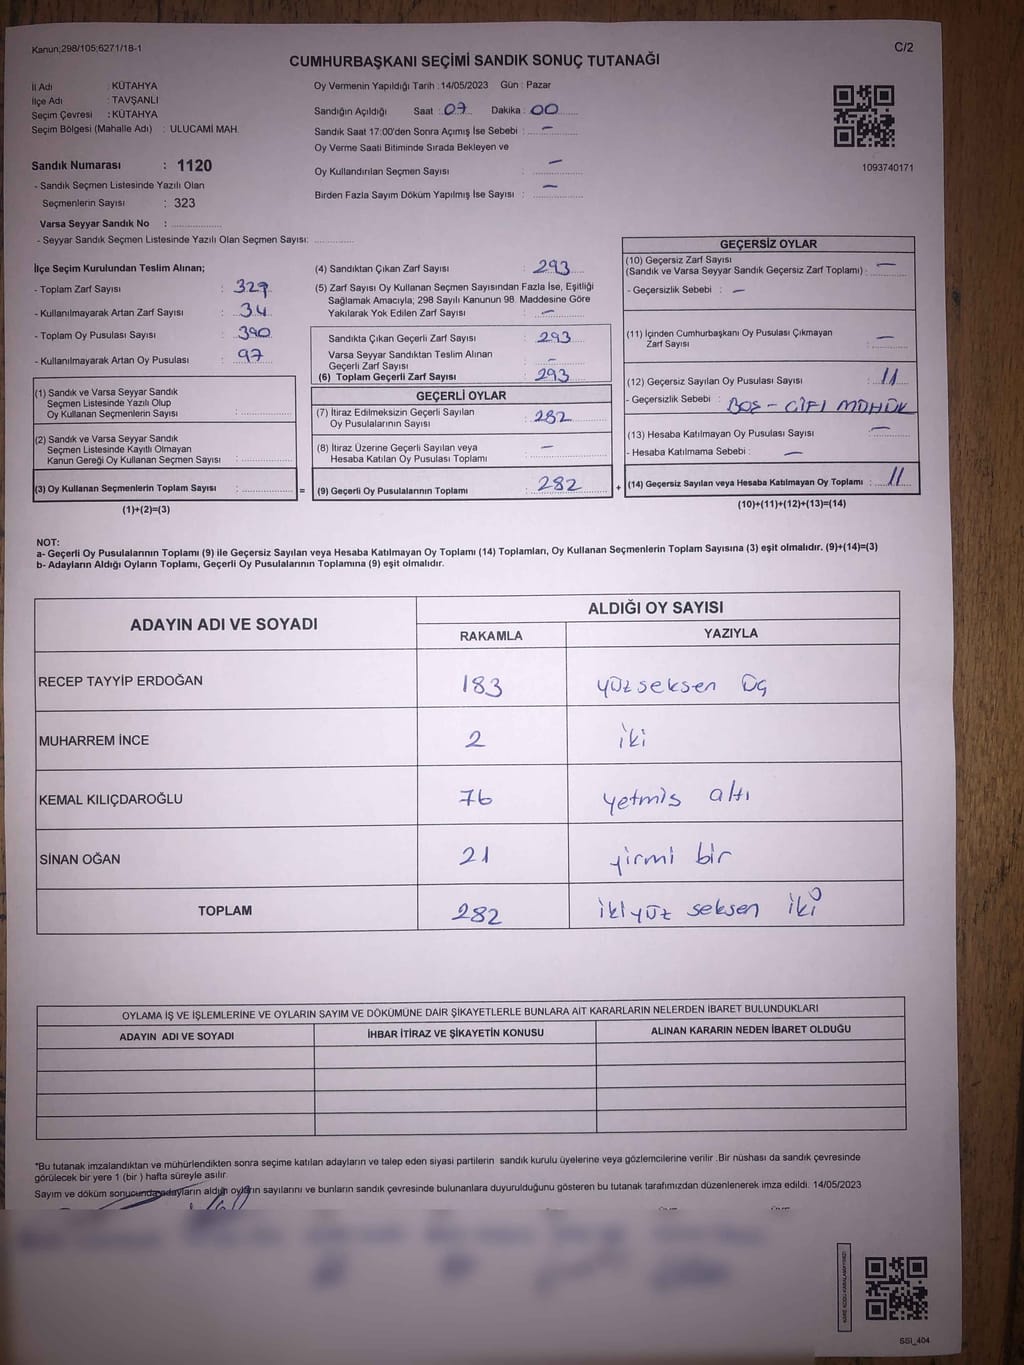 Kanun;298/105;6271/18-1
C/2
CUMHURBAŞKANI SEÇİMİ SANDIK SONUÇ TUTANAĞI
İl Adı : KÜTAHYA
İlçe Adı : TAVŞANLI
Seçim Çevresi : KÜTAHYA
Seçim Bölgesi (Mahalle Adı) : ULUCAMİ MAH.
Oy Vermenin Yapıldığı Tarih :14/05/2023 Gün : Pazar
Sandığın Açıldığı Saat : 07 Dakika : 00
Sandık Saat 17:00'den Sonra Açımış İse Sebebi : —
Oy Verme Saati Bitiminde Sırada Bekleyen ve
Oy Kullandırılan Seçmen Sayısı : —
Birden Fazla Sayım Döküm Yapılmış İse Sayısı : —
1093740171
Sandık Numarası : 1120
- Sandık Seçmen Listesinde Yazılı Olan
Seçmenlerin Sayısı : 323
Varsa Seyyar Sandık No :
- Seyyar Sandık Seçmen Listesinde Yazılı Olan Seçmen Sayısı:
İlçe Seçim Kurulundan Teslim Alınan;
- Toplam Zarf Sayısı : 327
- Kullanılmayarak Artan Zarf Sayısı : 34
- Toplam Oy Pusulası Sayısı : 390
- Kullanılmayarak Artan Oy Pusulası : 97
(1) Sandık ve Varsa Seyyar Sandık
Seçmen Listesinde Yazılı Olup
Oy Kullanan Seçmenlerin Sayısı :
(2) Sandık ve Varsa Seyyar Sandık
Seçmen Listesinde Kayıtlı Olmayan
Kanun Gereği Oy Kullanan Seçmen Sayısı :
(3) Oy Kullanan Seçmenlerin Toplam Sayısı :
=
(1)+(2)=(3)
(4) Sandıktan Çıkan Zarf Sayısı : 293
(5) Zarf Sayısı Oy Kullanan Seçmen Sayısından Fazla İse, Eşitliği
Sağlamak Amacıyla; 298 Sayılı Kanunun 98. Maddesine Göre
Yakılarak Yok Edilen Zarf Sayısı : —
Sandıkta Çıkan Geçerli Zarf Sayısı : 293
Varsa Seyyar Sandıktan Teslim Alınan
Geçerli Zarf Sayısı : —
(6) Toplam Geçerli Zarf Sayısı : 293
GEÇERLİ OYLAR
(7) İtiraz Edilmeksizin Geçerli Sayılan
Oy Pusulalarının Sayısı : 282
(8) İtiraz Üzerine Geçerli Sayılan veya
Hesaba Katılan Oy Pusulası Toplamı : —
(9) Geçerli Oy Pusulalarının Toplamı : 282
+
GEÇERSİZ OYLAR
(10) Geçersiz Zarf Sayısı
(Sandık ve Varsa Seyyar Sandık Geçersiz Zarf Toplamı) : —
- Geçersizlik Sebebi : —
(11) İçinden Cumhurbaşkanı Oy Pusulası Çıkmayan
Zarf Sayısı : —
(12) Geçersiz Sayılan Oy Pusulası Sayısı : 11
- Geçersizlik Sebebi : BOŞ - ÇİFT MÜHÜR
(13) Hesaba Katılmayan Oy Pusulası Sayısı : —
- Hesaba Katılmama Sebebi : —
(14) Geçersiz Sayılan veya Hesaba Katılmayan Oy Toplamı : 11
(10)+(11)+(12)+(13)=(14)
NOT:
a- Geçerli Oy Pusulalarının Toplamı (9) ile Geçersiz Sayılan veya Hesaba Katılmayan Oy Toplamı (14) Toplamları, Oy Kullanan Seçmenlerin Toplam Sayısına (3) eşit olmalıdır. (9)+(14)=(3)
b- Adayların Aldığı Oyların Toplamı, Geçerli Oy Pusulalarının Toplamına (9) eşit olmalıdır.
ADAYIN ADI VE SOYADI
ALDIĞI OY SAYISI
RAKAMLA YAZIYLA
RECEP TAYYİP ERDOĞAN 183 yüz seksen üç
MUHARREM İNCE 2 iki
KEMAL KILIÇDAROĞLU 76 yetmis altı
SİNAN OĞAN 21 yirmi bir
TOPLAM 282 ikiyüz seksen iki
OYLAMA İŞ VE İŞLEMLERİNE VE OYLARIN SAYIM VE DÖKÜMÜNE DAİR ŞİKAYETLERLE BUNLARA AİT KARARLARIN NELERDEN İBARET BULUNDUKLARI
ADAYIN ADI VE SOYADI İHBAR İTİRAZ VE ŞİKAYETİN KONUSU ALINAN KARARIN NEDEN İBARET OLDUĞU
*Bu tutanak imzalandıktan ve mühürlendikten sonra seçime katılan adayların ve talep eden siyasi partilerin sandık kurulu üyelerine veya gözlemcilerine verilir .Bir nüshası da sandık çevresinde
görülecek bir yere 1 (bir ) hafta süreyle asılır.
Sayım ve döküm sonucunda adayların aldığı oyların sayılarını ve bunların sandık çevresinde bulunanlara duyurulduğunu gösteren bu tutanak tarafımızdan düzenlenerek imza edildi. 14/05/2023
SSİ_404